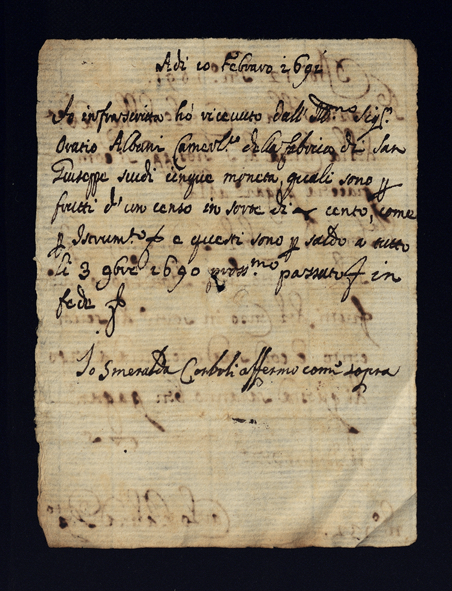 Adi 10 Febraro 1691
Io infrascritta hò riceuuto dall' Ill.mo Sig.r
Oratio Albani Camerl.o della fabrica di San
Giuseppe scudi cinque moneta quali sono p
frutti d' un censo in sorte di cento, come
p Istrum.to e questi sono p saldo a tutto
li 3 9bre 1690 pross.mo passato in
fede
Io Smeralda Corboli affermo come sopra